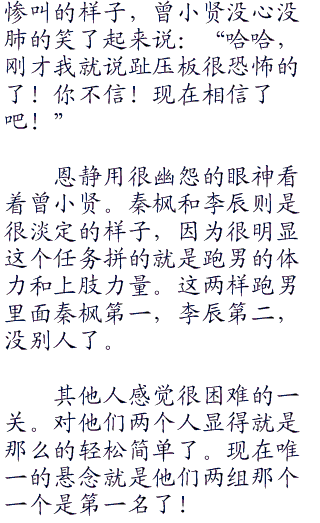 惨叫的样子，曾小贤没心没
肺的笑了起来说：“哈哈，
刚才我就说趾压板很恐怖的
了！你不信！现在相信了
吧！”
恩静用很幽怨的眼神看
着曾小贤。秦枫和李辰则是
很淡定的样子，因为很明显
这个任务拼的就是跑男的体
力和上肢力量。这两样跑男
里面秦枫第一，李辰第二，
没别人了。
其他人感觉很困难的一
关。对他们两个人显得就是
那么的轻松简单了。现在唯
一的悬念就是他们两组那个
一个是第一名了！